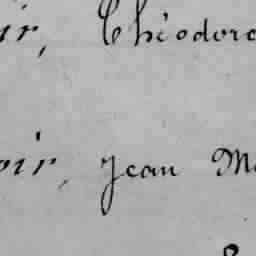 ir, Théodore
oir, Jean M